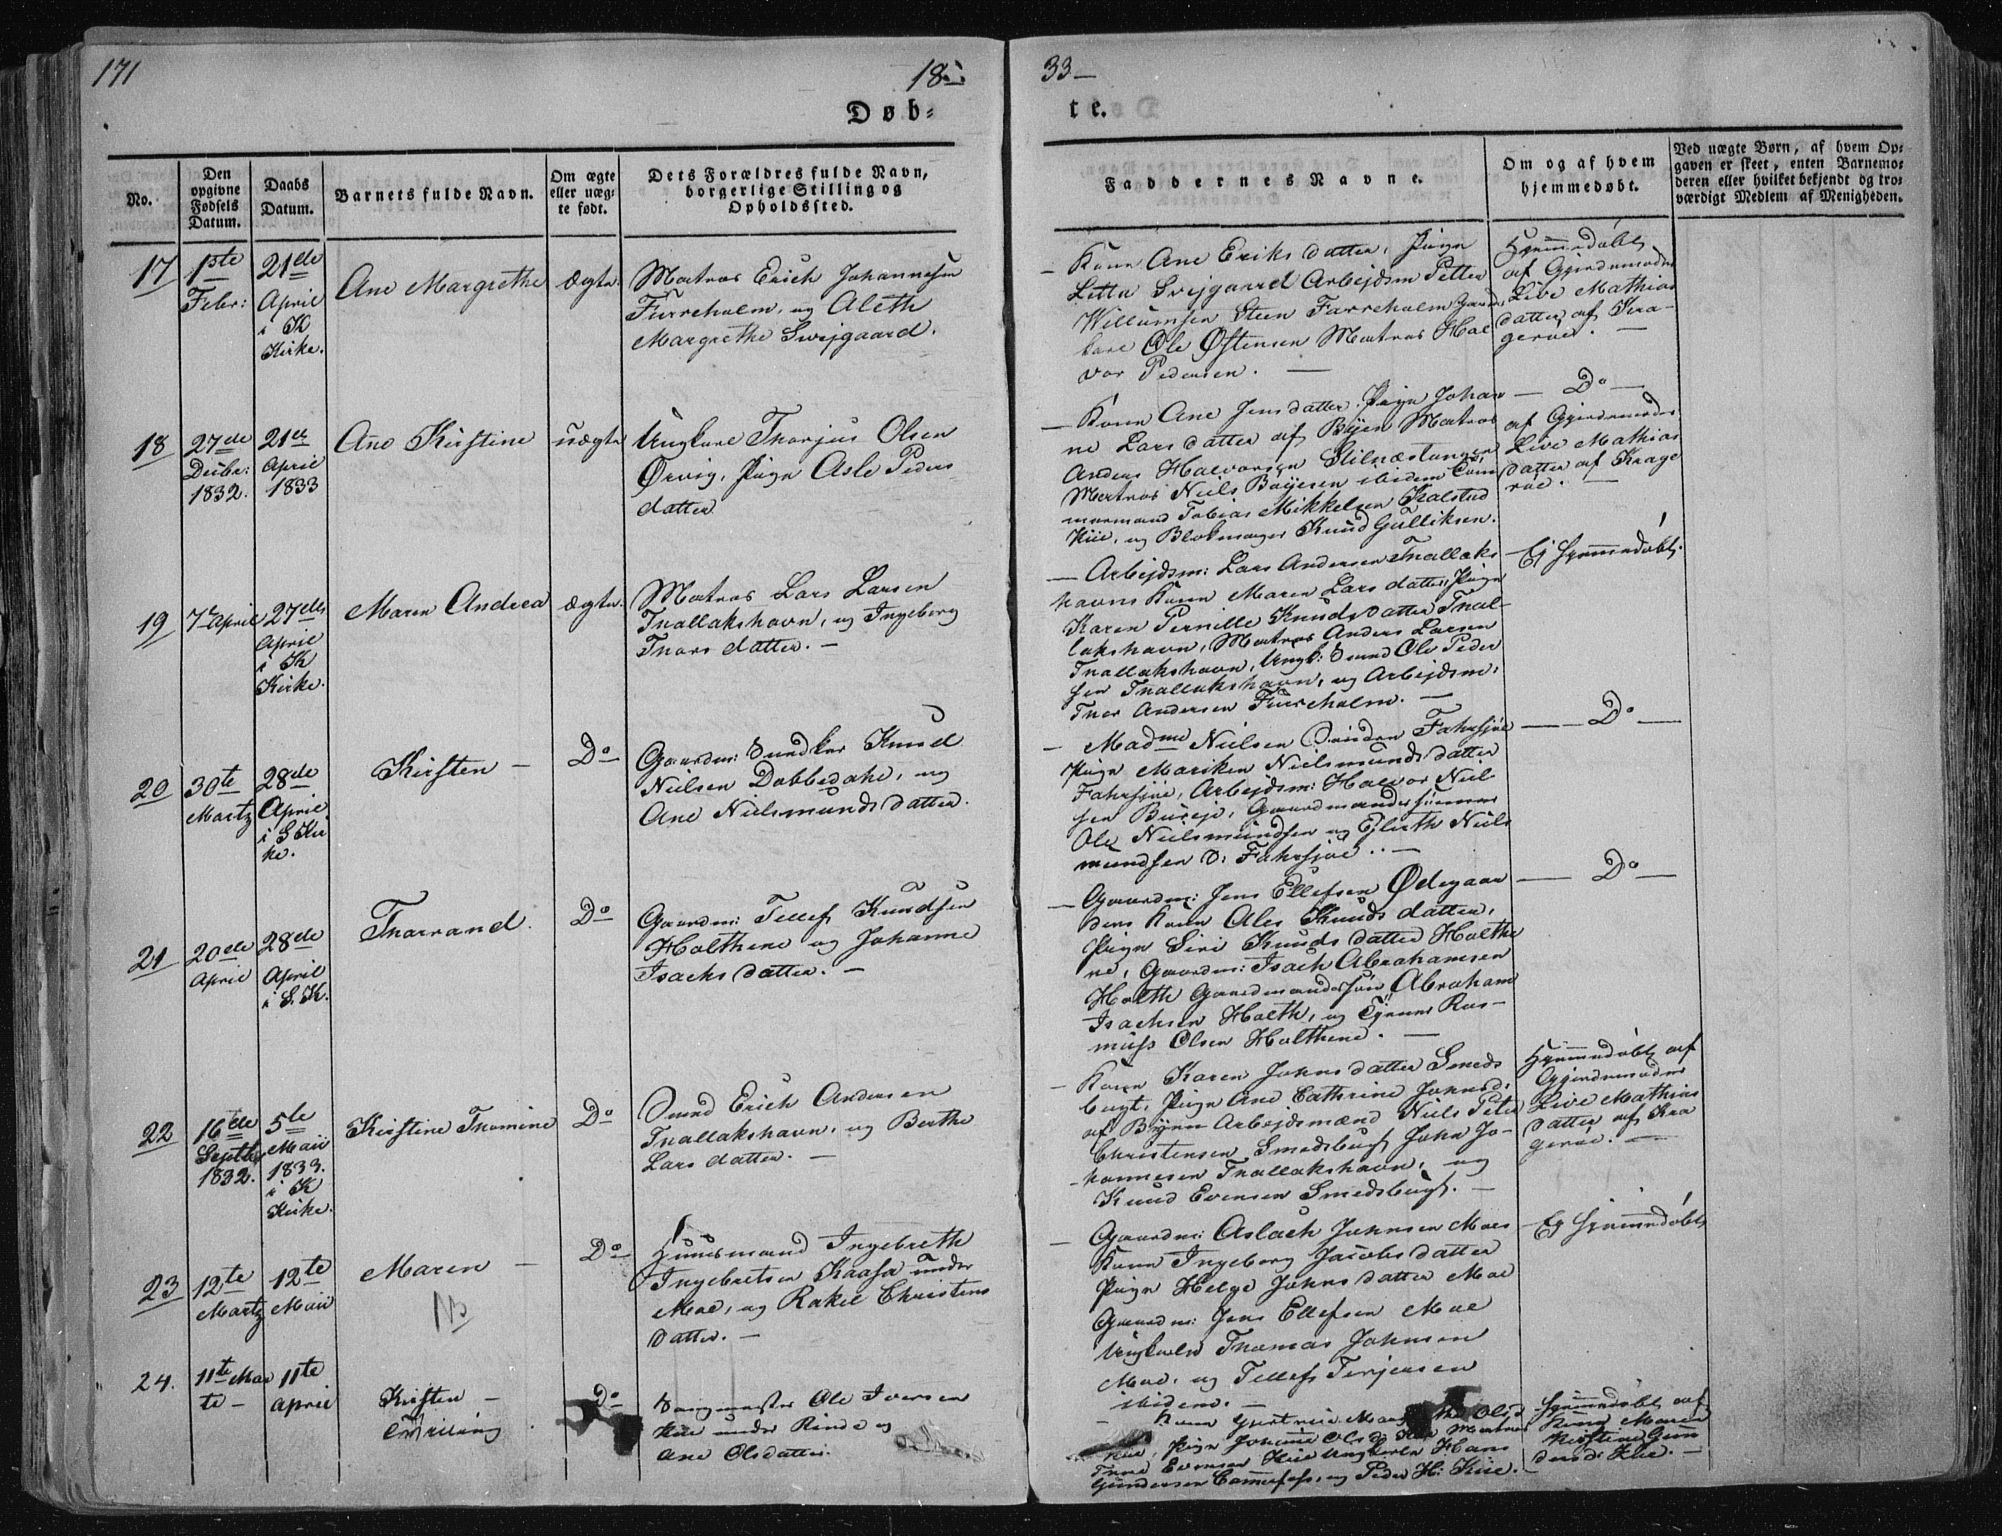 171
18
33
Døb-
te.
No.
Den opgivne Fødsels Datum.
Daabs Datum.
Barnets fulde Navn.
Om ægte eller uægte født.
Dets Forældres fulde Navn, borgerlige Stilling og Opholdssted.
Faddernes Navne.
Om og af hvem hjemmedøbt.
Ved uægte Børn, af hvem Opgaven er skeet, enten Barnemoderen eller hvilket bekjendt og troværdigt Medlem af Menigheden.
17
1ste
Febr:
21de
April
i K
Kirke.
Ane Margrethe
ægte
Matros Erich Johannesen
Furreholm, og Aleth
Margrethe Svejgaard.
Kone Ane Eriks datter, Pige
Svejgaard Arbejdsm Petter
Willumsen Steen Farreholm
Ole Østensen Matros Hal
vor Pedersen.
Hjemmedøbt
af Gjordemoder
Live Mathias
datter af Kra-
gerøe.
18
27de
Decbr:
1832.
21de
April
1833
Ane Kirstine
uægte
Ungkare Thorjus Olsen
Ørvig, Pige Asle Peders
datter
Kone Ane Jens datter, Pige Johan
ne Lars datter af Byen Matros
Anders Halvorsen Stilnæstangen
Matros Niels Bøyesen ibidem Tøm
mermand Tobias Mikkelsen Kalstad
Kiie, og Blokmager Knud Gulliksen.
Do
af Gjordemoder
Live Mathias
datter af Krage
røe.
19
7de April
27de
April
i K
Kirke.
Maren Andrea
ægte.
Matros Lars Larsen
Tnallakshavn, og Ingeborg
Tnors datter.
Arbejdsm: Lars Andersen Tnallaks
havns Kone Maren Lars datter, Pige
Karen Pernille Knuds datter Tnal-
lakshavn, Matros Anders Larsen
Tnallakshavn, Ungk: Ole Peder
sen Tnallakshavn, og Arbejdsm:
Tnor Andersen Furreholm.
Ej Hjemmedøbt.
20
30te
Martz
28de
April
i S Kir
ke.
Kirsten
Do
Gaardm: Knud
Nielsen Dobbedahl, og
Ane Nielsmunds datter.
Madme Nielsen Fahrsjøe
Pige Mariken Nielsmunds datter
Fahrsjøe, Arbejdsm: Halvor Niel
sen Gaardmandssønner
Ole Nielsmundsen og Ejlerth Niels
mundsen Fahrsjøe.
Do
21
20de
April
28de
April
i S. K.
Thorrand.
Do
Gaardm: Tellef Knudsen
Holthene og Johanne
Isachs datter.
Gaardm: Jens Ellefsen Ødegaar
dens Kone Ales Knuds datter,
Pige Siri Knuds datter Holthe
ne, Gaardm: Isach Abrahamsen
Holth Gaardmandssøn Abraham
Isachsen Holth, og Tjener Ras-
muss Olsen Holthene.
Do
22
16de
Septbr
1832.
5te
Maii
1833.
i K
Kirke.
Kirstine Tnomine
Do
Erich Andersen
Tnallakshavn, og Berthe
Lars datter.
Kone Karen Johns datter Smeds
bugt, Pige Ane Cathrine Johnsd.
af Byen Arbejdsmænd Niels Peter
Christensen Smedsbugt John Jo-
hannesen Tnallakshavn, og
Knud Evensen Smedsbugt.
Hjemmedøbt af
Gjordemoder
Live Mathias
datter af Kra
gerøe.
23
12te
Martz
12te
Maii
Maren
Do
Huusmand Ingebreth
Ingebretsen Kaasa under
Moe, og Rakel Christens
datter.
Gaardm: Aslach Johnsen Moes
Kone Ingeborg Jacobs datter
Pige Helge Johns datter Moe
Gaardm: Jens Ellefsen Moe
Ungkarle Tnomas Johnsen
Moe, og Tellef Terjesen
ibidem.
Ej Hjemmedøbt
24.
11te Mar
te
11te
April
Kirsten
Tvilling
Do
Ole Iversen
Kiie under Rinde og
Ane Olsdatter.
Kone
Kiie, Pige Johanne Olsd Kiie Matros
Tnor Evensen Kiie Ungkarle Hans
Gundersen og Peder H: Kiie.
Hjemmedøbt af
Kone Maren
Kirstine Gun
dersd: Kiie.